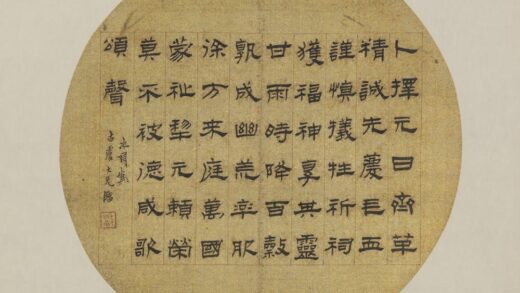 卜擇元日齊革
精誠先慶巨五
謹慎犧牲祈祠
獲福神享其靈
甘雨時降百穀
孰成幽荒率服
徐方來庭萬國
蒙祉犁元賴榮
莫不被德咸歌
頌聲
大兄